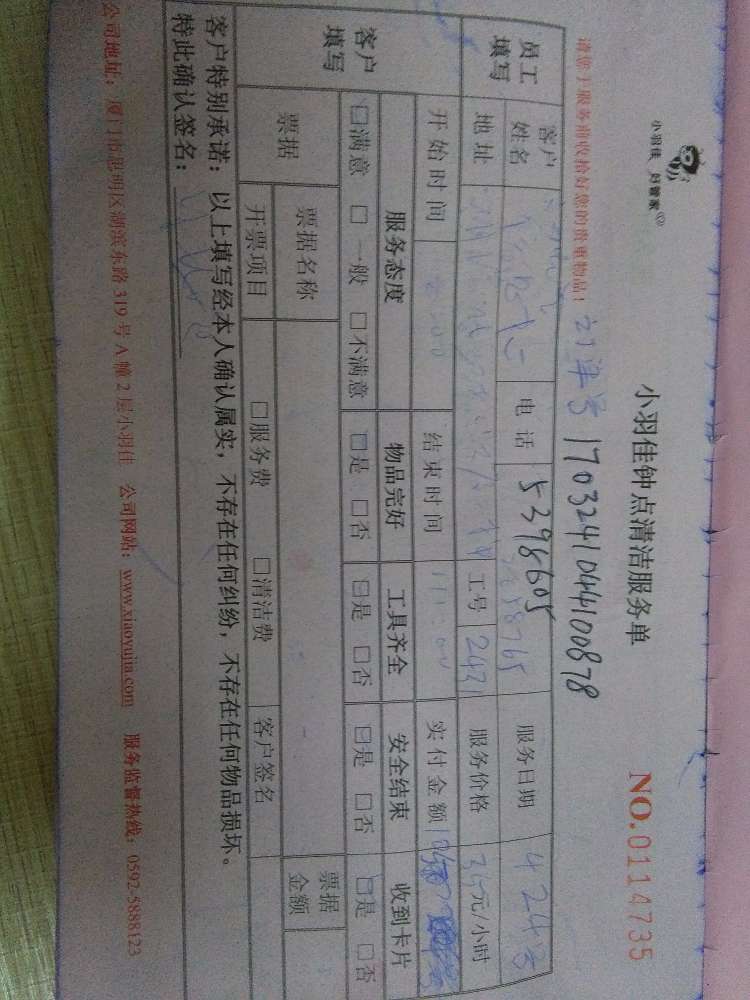 小羽佳 好管家®
小羽佳钟点清洁服务单
NO.0114735
请您于服务前收拾好您的贵重物品!
订单号 1703241044100878
员工填写
客户姓名
电话 5398605
服务日期 4 24号
地址
工号 2431
服务价格 35元/小时
开始时间
结束时间
实付金额
客户填写
服务态度 物品完好 工具齐全 安全结束 收到卡片
□满意 □一般 □不满意 □是 □否 □是 □否 □是 □否 □是 □否
票据
票据名称
票据金额
开票项目 □服务费 □清洁费 客户签名
客户特别承诺:以上填写经本人确认属实,不存在任何纠纷,不存在任何物品损坏。
特此确认签名:
公司地址:厦门市思明区湖滨东路319号A幢2层小羽佳 公司网站:www.xiaoyujia.com 服务监督热线:0592-5888123